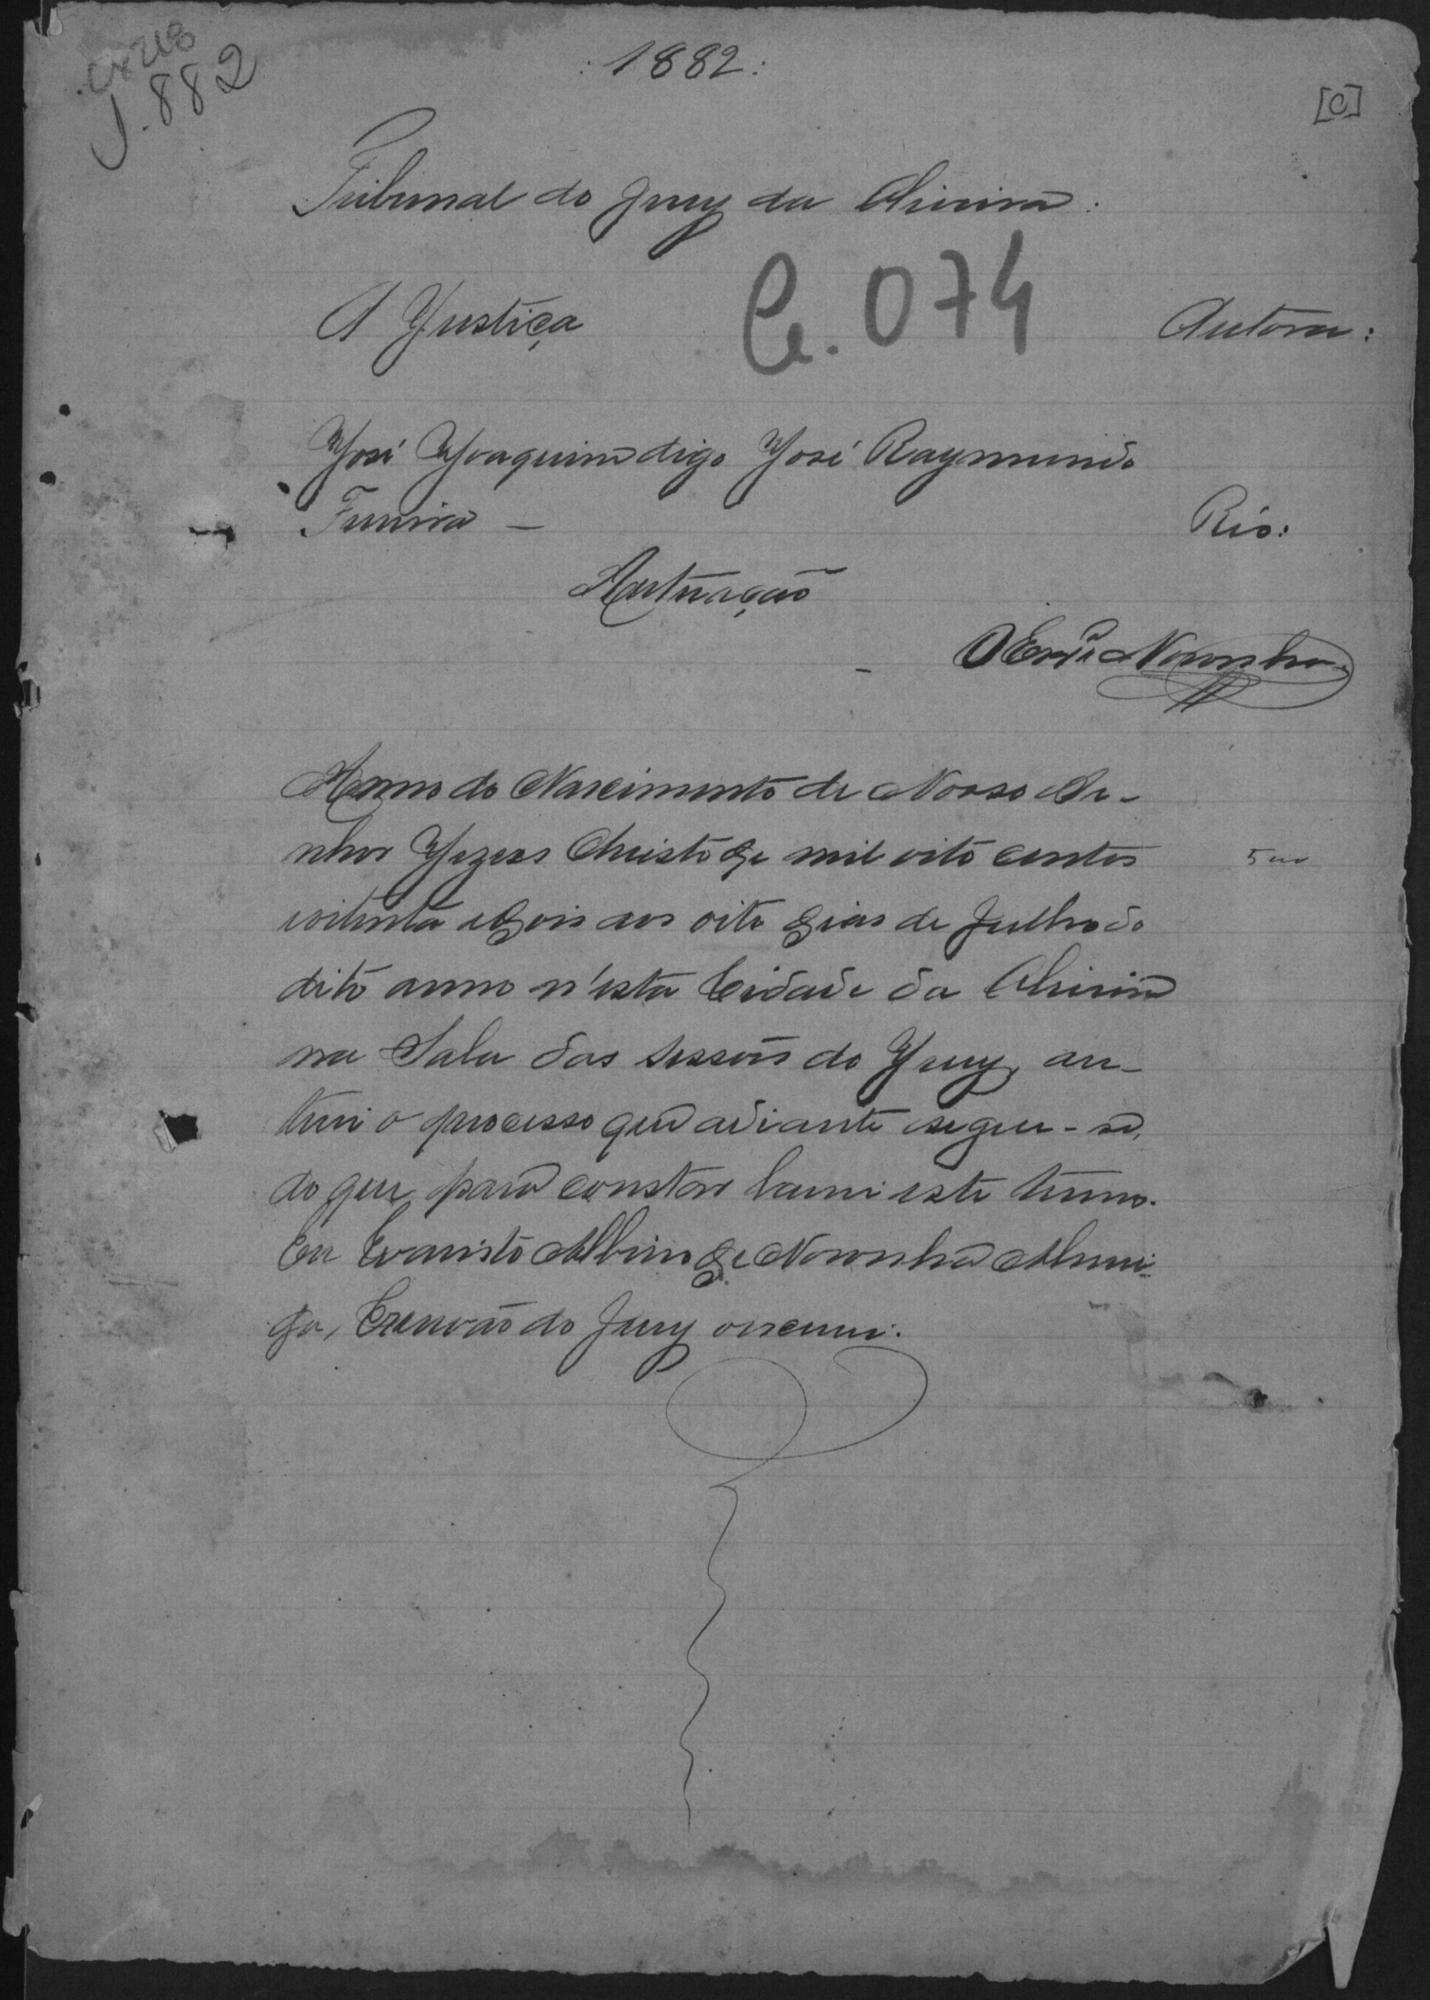 J.882
:1882:
[C]
Tribunal do Jury da Oliveira:
A Justiça
Autora:
C. 074
José Joaquim digo José Raymundo
Ferreira —
Réo:
Autuação
O Esc.am Noronha
Anno do Nascimento de Nosso Se-
nhor Jezus Christo de mil oito centos
e oitenta e dois aos oito dias de Julho do
dito anno n'esta Cidade da Oliveira
na Sala das sessões do Jury, au-
tuei o processo que adiante segue-se,
do que, para constar lavrei este termo.
Eu Evaristo Albino de Noronha Almei-
da, Escrivão do Jury o escrevi.